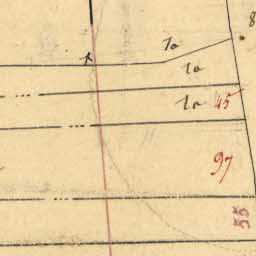 8
1a
1a
1a 45
97
55